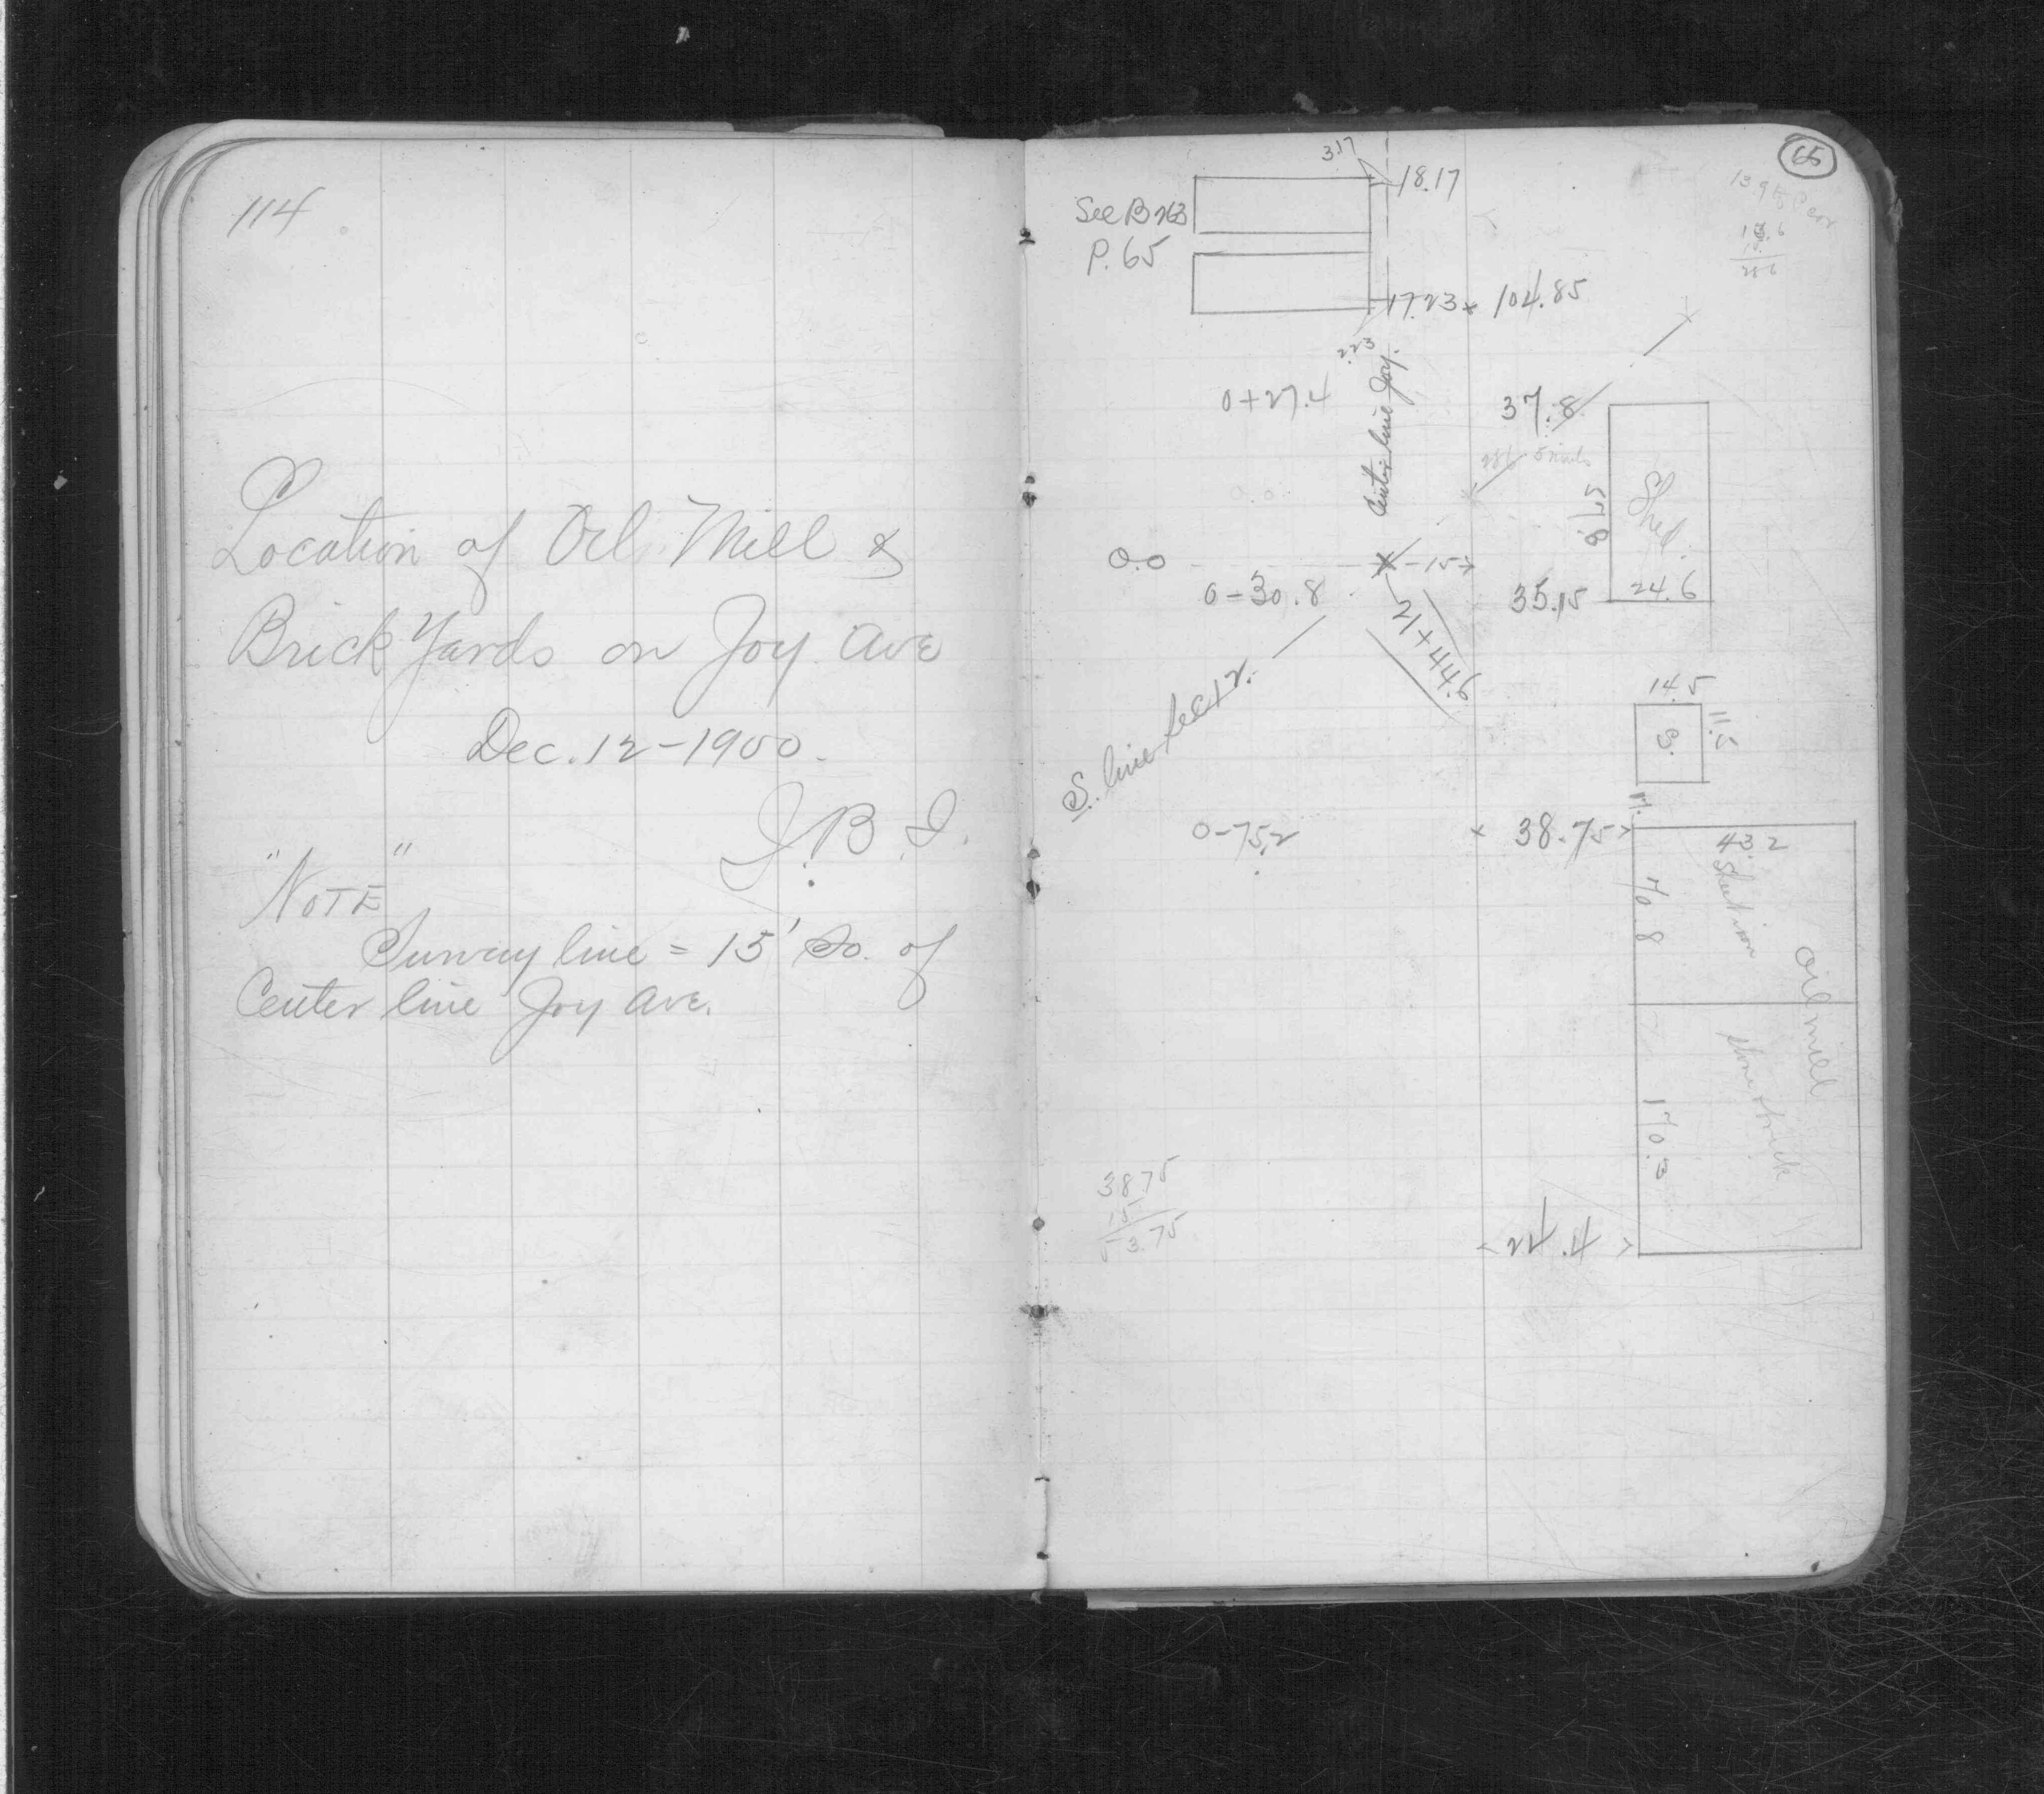 114
Location of Oil Mill &
Brick Yards on Joy Ave
Dec. 12-1900.
J.B.I.
"NOTE"
Survey line = 15' So. of
Center line Joy Ave.
65
3.17
18.17
See B 263
P. 65
17.23 x 104.85
2.23
Center line Joy.
0+27.4
37.8
Shed.
24.6
0.0
15
0-30.8
35.15
21+44.6
S. line Sec 12.
14.5
11.5
S.
17.
0-75.2
38.75
43.2
70.8
Oil mill
170.3
38.75
15
53.75
24.4